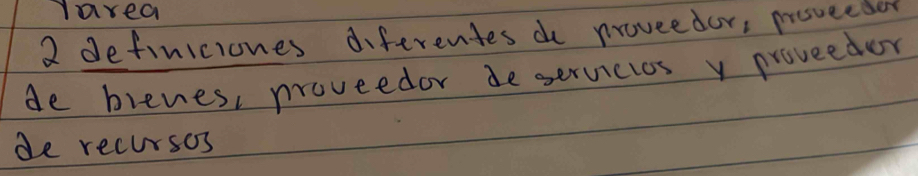 Tarea
2 definiciones diferentes de proveedor, proveedor
de bienes, proveedor de servicios y proveedor
de recursos